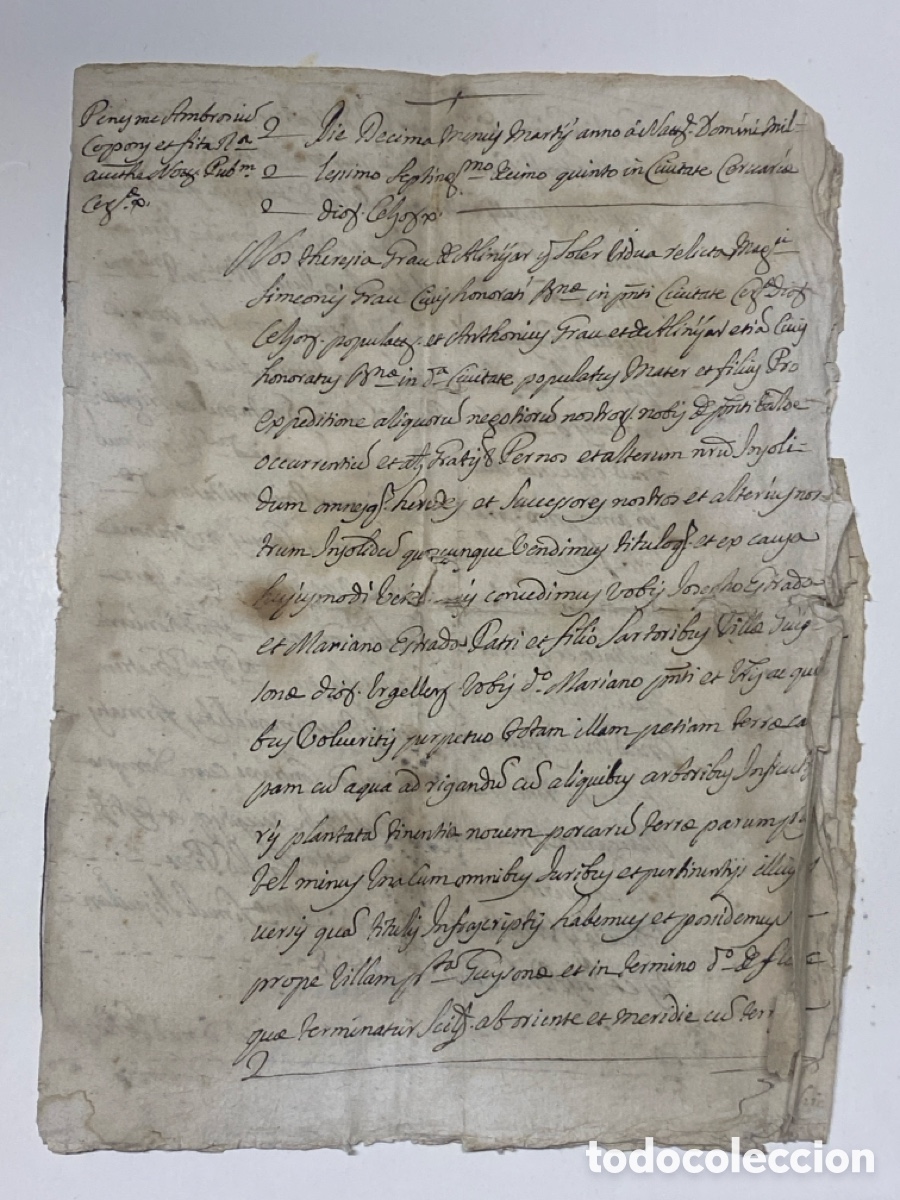 Penes me Ambrosiũ
Corpony et fita Rᵃ
aucthe Noṯ. Pubᵐ.
Die Decima Mensis Martij anno à Naᵗᵉ. Domini Mil-
lesimo Septingᵐᵒ decimo quinto in Ciuitate Ceruariæ
dioṣ. Celsoṇ
Nos Theresia Grau & de Alinÿar y Soler Vidua relicta Magⁱ
Simeonis Grau Ciuis honorati Bnæ in pñti Ciuitate dioṣ
Celsoṇ. populaṯ. et Anthonius Grau et de Alinÿar etiã Ciuis
honoratus Bnæ in dᵃ Ciuitate populatus Mater et filius Pro
expeditione aliquorũ negotiorũ nostroṛ. nobis de pñti
occurrentiũ et Gratis & Per nos et alterum nrũ Insoli-
dum omnesq. heredes et Successores nostros et alterius nos-
trum Insolidũ quoscunque Vendimus titulo q. et ex causa
hujusmodi concedimus Vobis Josepho Estrado
et Mariano Estrado Patri et filio Sartoribus Villæ Guis-
sonæ dioṣ. Urgelleṇ Vobis dᵒ. Mariano pñti et Vrīs ac qui
bus Volueritis perpetuo Totam illam petiam terræ ca
pam cũ aqua ad rigandũ cũ aliquibus arboribus Infructi
rijs plantatã tinentiæ novem porcarũ terræ parum plus
Vel minus Una cum omnibus Juribus et pertinentijs illius
quã titulis Infrascriptis habemus et possidemus
prope Villam pᵗᵃ Guysonæ et in termino dᵒ de
quæ terminatur Sciḷ. ab oriente et meridie cũ terr
todocoleccion